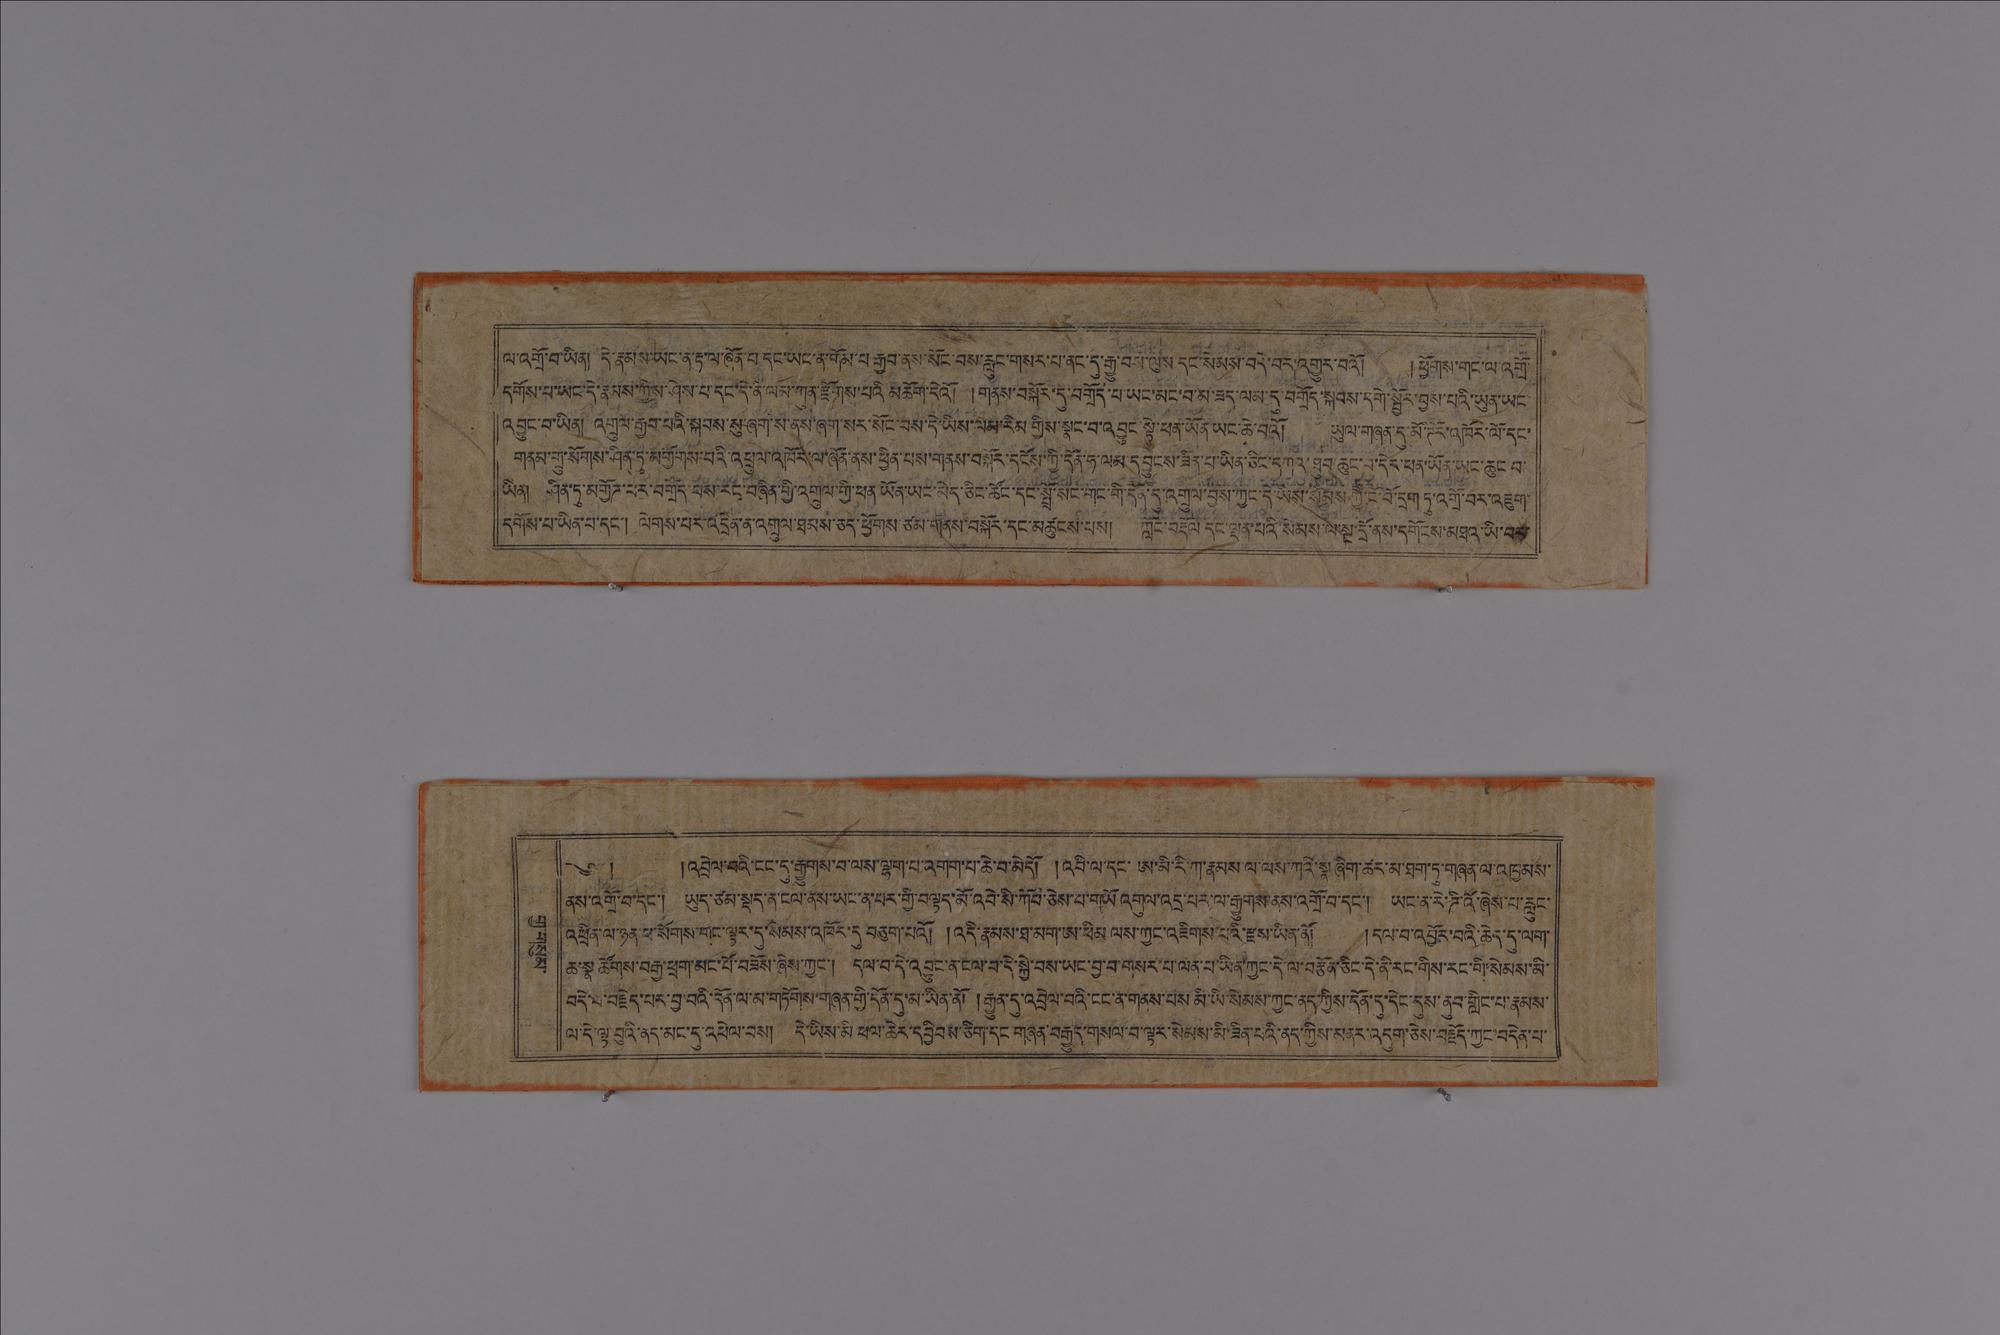 ལ་འགྲོ་བ་ཡིན། དེ་རྣམས་ཡང་ན་རྟ་ལ་ཞོན་པ་དང་ཡང་ན་གོམ་པ་རྒྱབ་ནས་སོང་བས་རླུང་གསར་པ་ནང་དུ་རྒྱུ་བས་ལུས་དང་སེམས་བདེ་བར་འགྱུར་བའོ། །ཕྱོགས་གང་ལ་འགྲོ་
དགོས་པ་ཡང་དེ་རྣམས་ཀྱིས་ཤེས་པ་དང་དེ་ནི་ལམ་ཀུན་རྫོགས་པའི་མཆོག་དེའོ། །གནས་བསྐོར་དུ་བགྲོད་པ་ཡང་མང་བ་མ་ཟད་ལམ་དུ་བགྲོད་སྐབས་དགེ་སྦྱོར་བྱས་པའི་ཡུན་ཡང་
འབྱུང་བ་ཡིན། འགྲུལ་རྒྱབ་པའི་སྐབས་སུ་ཞག་ས་ནས་ཞག་སར་སོང་བས་དེ་ཡིས་ལམ་རིམ་གྱིས་སྣང་བ་འབྱུང་སྟེ་ཕན་ཡོན་ཡང་ཆེ་བའོ། ཡུལ་གཞན་དུ་མོ་ཊེར་འཁོར་ལོ་དང་
གནམ་གྲུ་སོགས་ཤིན་ཏུ་མགྱོགས་པའི་འཕྲུལ་འཁོར་ལ་ཞོན་ནས་ཕྱིན་པས་གནས་བསྐོར་དངོས་ཀྱི་དོན་ཧ་ལམ་དབྱུངས་ཟིན་པ་ཡིན་ཅིང་དཀའ་ཐུབ་ཆུང་བ་དེར་ཕན་ཡོན་ཡང་ཆུང་བ་
ཡིན། ཤིན་ཏུ་མགྱོགས་པར་བགྲོད་པས་རང་བཞིན་གྱི་འགྲུལ་གྱི་ཕན་ཡོན་ཡང་མེད་ཅིང་ཚོང་དང་སྤྲོ་སེང་གང་གི་དོན་དུ་འགྲུལ་བྱས་ཀྱང་དེ་ཡིས་སེམས་ཀྱི་ངོ་བོ་དྲག་ཏུ་འགྲོ་བར་འཇུག་
དགོས་པ་ཡིན་པ་དང་། ལེགས་པར་འདྲེན་ན་འགྲུལ་ཐམས་ཅད་ཕྱོགས་ཙམ་གནས་བསྐོར་དང་མཚུངས་པས། ཀློང་བརྡོལ་དང་ལྡན་པའི་སེམས་ལ་སྔ་དྲོ་ནས་དགོངས་མཐའ་ཡི་བར་
༄། །འབྲེལ་བའི་ངང་དུ་རྒྱུགས་བ་ལས་ལྷག་པ་འགག་པ་ཆེ་བ་མེདོ། །འབི་ལ་དང་ ཨ་མི་རི་ཀ་རྣམས་ལ་ལས་ཀའི་སྣ་ཞིག་ཚར་མ་ཐག་ཏུ་གཞན་ལ་འཁྱམས་
ནས་འགྲོ་བ་དང་། ཡུད་ཙམ་སྡད་ན་ངལ་ནས་ཡང་ན་པར་གྱི་བལྟད་མོ་འབེ་སི་ཀོབ་ཅེས་པ་གཡོ་འགུལ་འདྲ་པར་ལ་རྒྱུགས་ནས་འགྲོ་བ་དང་། ཡང་ན་རེ་ཌི་འོ་ཞེས་པ་རླུང་
འཕྲིན་ལ་ཉན་པ་སོགས་གང་ལྟར་དུ་སེམས་འཁོར་དུ་བཅུག་པའོ། །འདི་རྣམས་ཐ་མག་ཨ་ཕིམ་ལས་ཀྱང་འཇིགས་པའི་རྫས་ཡིན་ནོ། །དལ་བ་འབྱོར་བའི་ཆེད་དུ་ལག་
ཆ་སྣ་ཚོགས་བརྒྱ་ཕྲག་མང་པོ་བཟོས་ཞེས་ཀྱང་། དལ་བ་དེ་འབྱུང་ན་ངལ་བ་དེ་སྐྱེ་བས་ཡང་བྱ་བ་གསར་པ་ལན་པ་ཡིན་ཀྱང་དེ་ལ་བརྩོན་ཅིང་དེ་ནི་རང་གིས་རང་གི་སེམས་མི་
བདེ་བ་བརྗེད་པར་བྱ་བའི་དོན་ལ་མ་གཏོགས་གཞན་གྱི་དོན་དུ་མ་ཡིན་ནོ། །རྒྱུན་དུ་འབྲེལ་བའི་ངང་ན་གནས་པས་མི་ཡི་སེམས་ཀྱང་ནད་ཀྱིས་དོན་དུ་དེང་དུས་ནུབ་གླིང་པ་རྣམས་
ལ་དེ་ལྟ་བུའི་ནད་མང་དུ་འཕེལ་བས། དེ་ཡིས་མི་ཕལ་ཆེར་དབྱིབས་ཅིག་དང་གཞན་བརྒྱུད་གསལ་བ་ལྟར་སེམས་མི་ཟིན་པའི་ནད་ཀྱིས་མནར་འདུག་ཅེས་བརྗོད་ཀྱང་བདེན་པ་